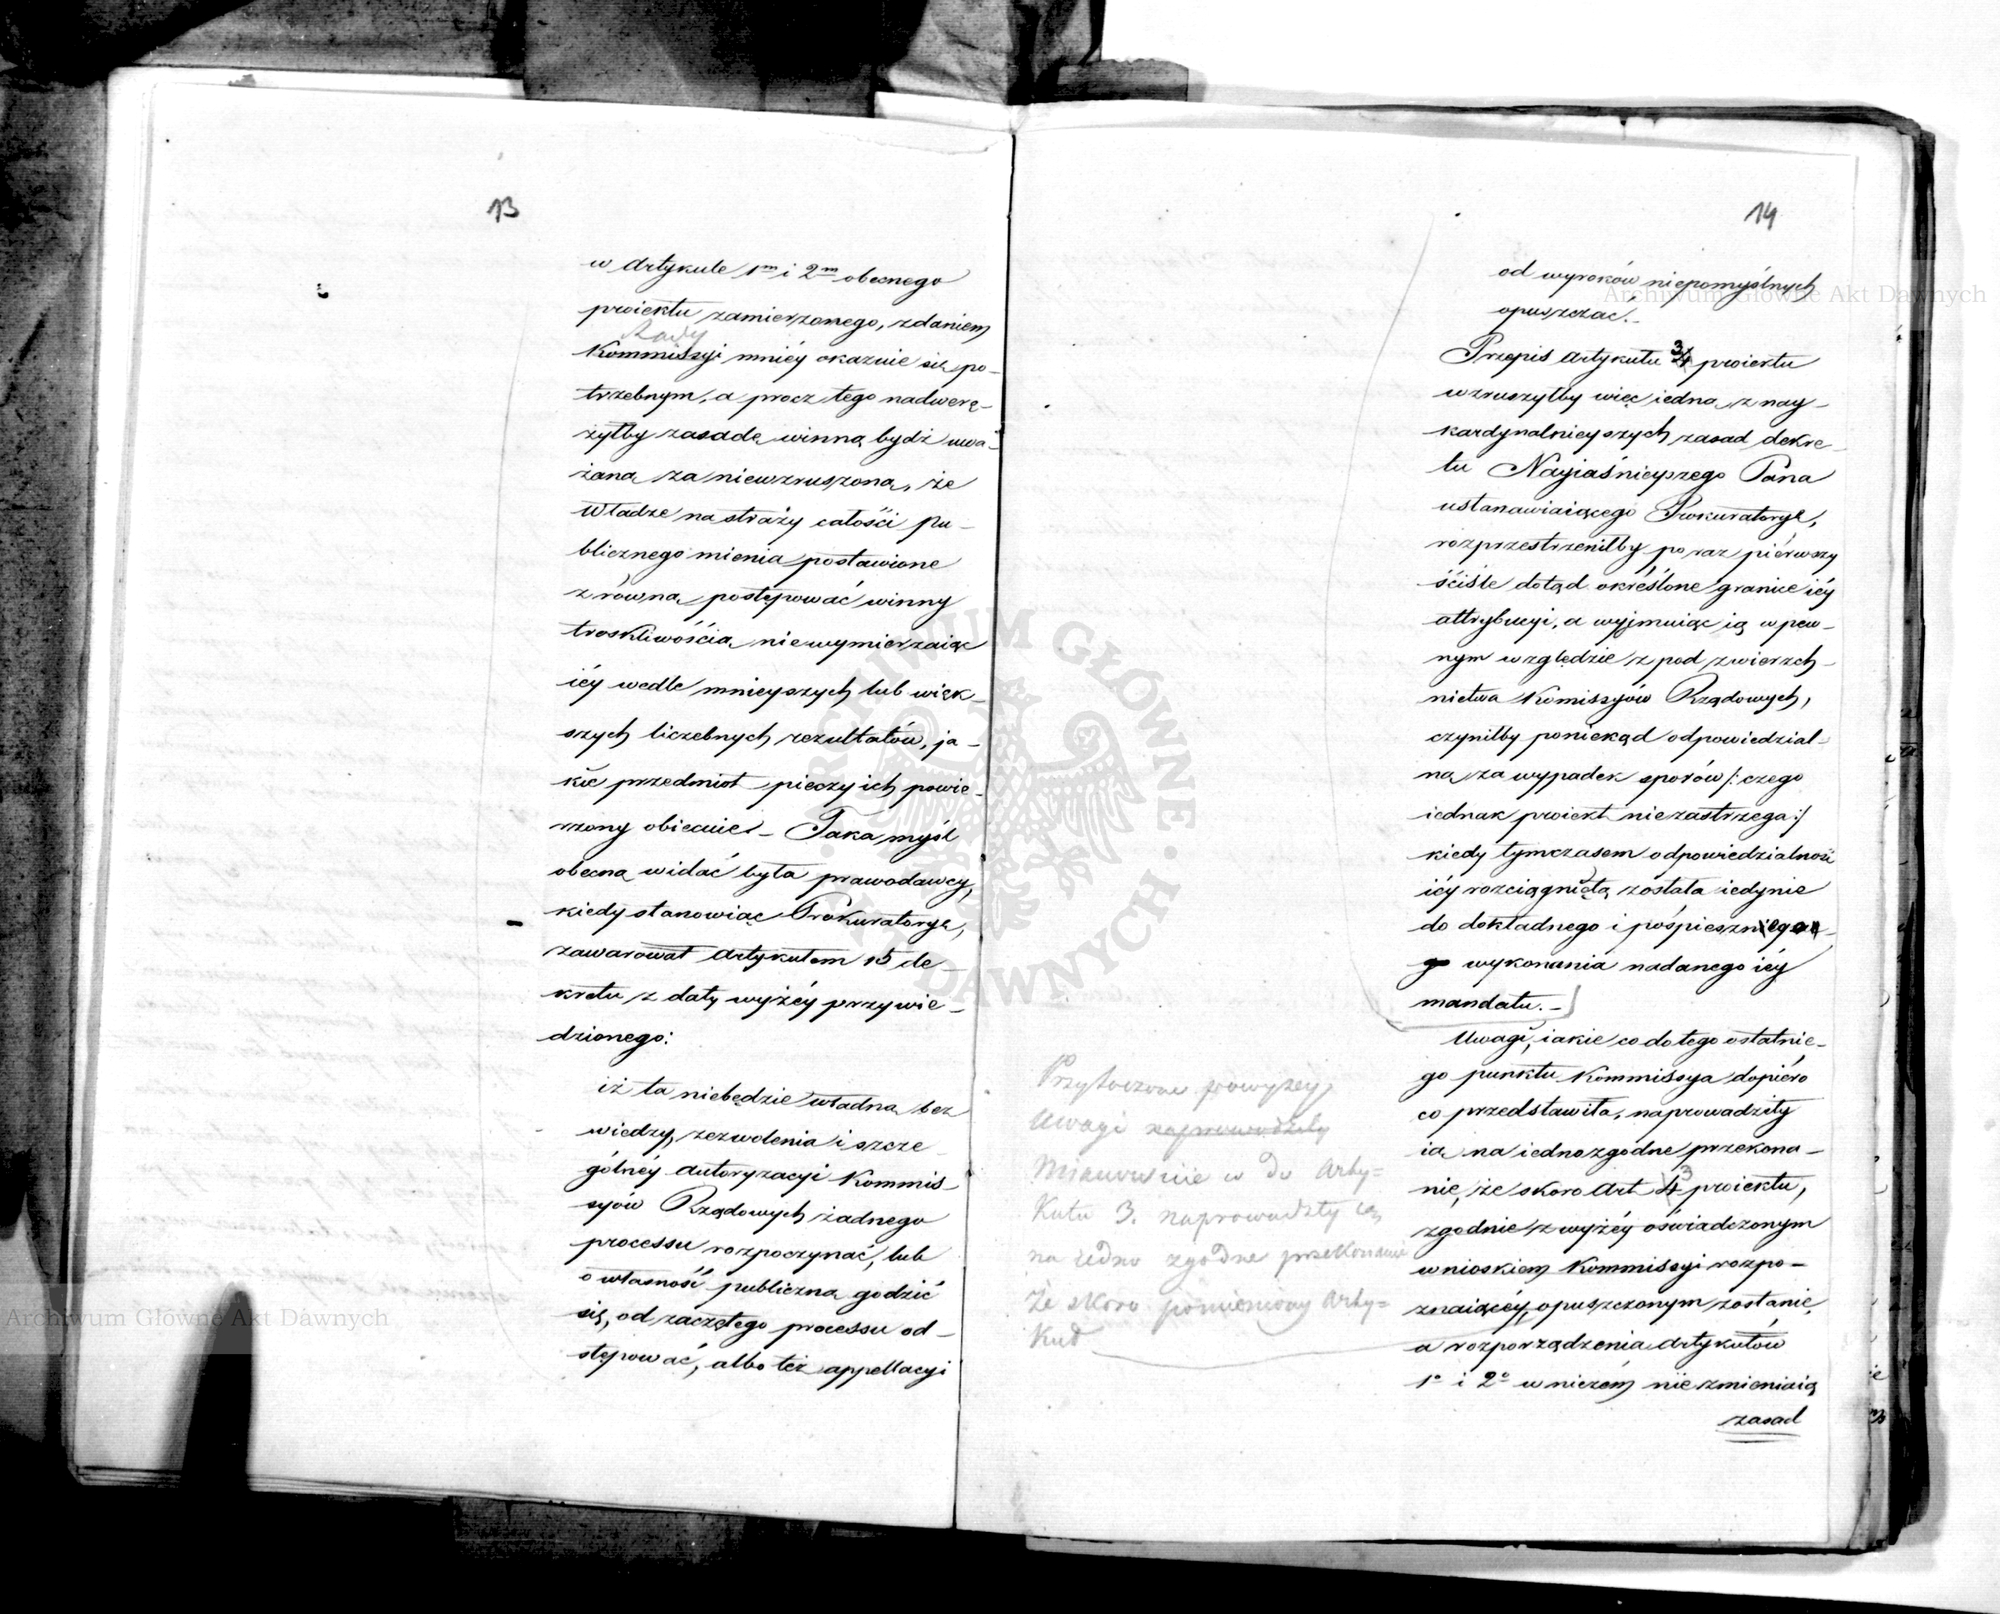 13
w Artykule 1m i 2m obecnego
proiektu zamierzonego, zdaniem
Rady
Kommissyi mniéy okazuie się po-
trzebnym, a procz tego nadwerę-
żyłby zasadę winną bydź uwa-
żaną za niewzruszoną, że
Władze na straży całości pu-
blicznego mienia postawione
z równą postępować winny
troskliwością, niewymierzaiąc
iéy wedle mnieyszych lub więk-
szych liczebnych rezultatów, ja-
kie przedmiot pieczy ich powie-
rzony obiecuie. - Taka myśl
obecną widać była prawodawcy,
kiedy stanowiąc Prokuratoryę,
zawarował Artykułem 15 de-
kretu z daty wyżéy przywie-
dzionego:
iż ta niebędzie władną bez
wiedzy, zezwolenia i szcze
gólnéy autoryzacyi Kommis-
syów Rządowych żadnego
processu rozpoczynać, lub
o własność publiczną godzić
się, od zaczętego processu od-
stępować, albo też appellacyi
14
od wyroków niepomyślnych
opuszczać. -
Przepis Artykułu 3 4 proiektu
wzruszyłby więc iedną z nay-
kardynalnieyszych zasad dekre-
tu Nayiaśnieyszego Pana
ustanawiaiącego Prokuratoryę,
rozprzestrzeniłby po raz piérwszy
ściśle dotąd określone granice iéy
attrybucyi, a wyjmuiąc ią w pew-
nym względzie z pod zwierzch-
nictwa Komissyów Rządowych,
czyniłby poniekąd odpowiedzial-
ną za wypadek sporów /: czego
iednak proiekt niezastrzega :/
kiedy tymczasem odpowiedzialność
iéy rozciągniętą została iedynie
do dokładnego i pośpieszn
go wykonania nadanego iéy
mandatu. -
Uwagi, iakie co do tego ostatnie-
go punktu Kommissya dopiero
co przedstawiła, naprowadziły
ią na iednozgodne przekona-
nie, że skoro Art 4 3 proiektu,
zgodnie z wyżéy oświadczonym
wnioskiem Kommissyi rozpo-
znaiącéy, opuszczonym zostanie,
a rozporządzenia Artykułów
1o i 2o w niczém nie zmieniaią
zasad
Przytoczone powyżey
Uwagi naprowadziły
Mianowicie w do Arty=
kułu 3. naprowadziły ią
na iedno zgodne przekonanie
Że skoro pomieniony Arty=
kuł
Archiwum Główne Akt Dawnych
Archiwum Główne Akt Dawnych
ARCHIWUM GŁÓWNE AKT DAWNYCH